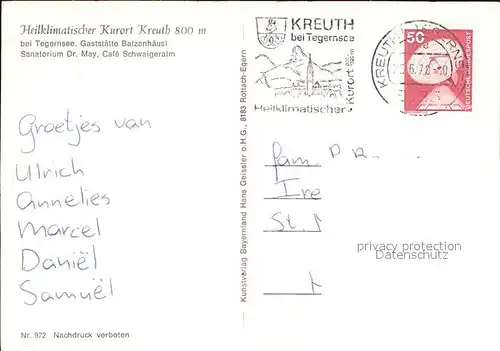 Heilklimatischer Kurort Kreuth 800 m
bei Tegernsee, Gaststätte Batzenhäusl
Sanatorium Dr. May, Café Schwaigeralm
Groetjes van
Ulrich
Annelies
Marcel
Daniël
Samuël
Nr. 972 Nachdruck verboten
Kunstverlag Bayernland Hans Geissler o.H.G., 8183 Rottach-Egern
KREUTH
bei Tegernsee
Heilklimatischer Kurort 800 m
KREUTH
50
DEUTSCHE BUNDESPOST
Fam.
Ire
St.
privacy protection
Datenschutz